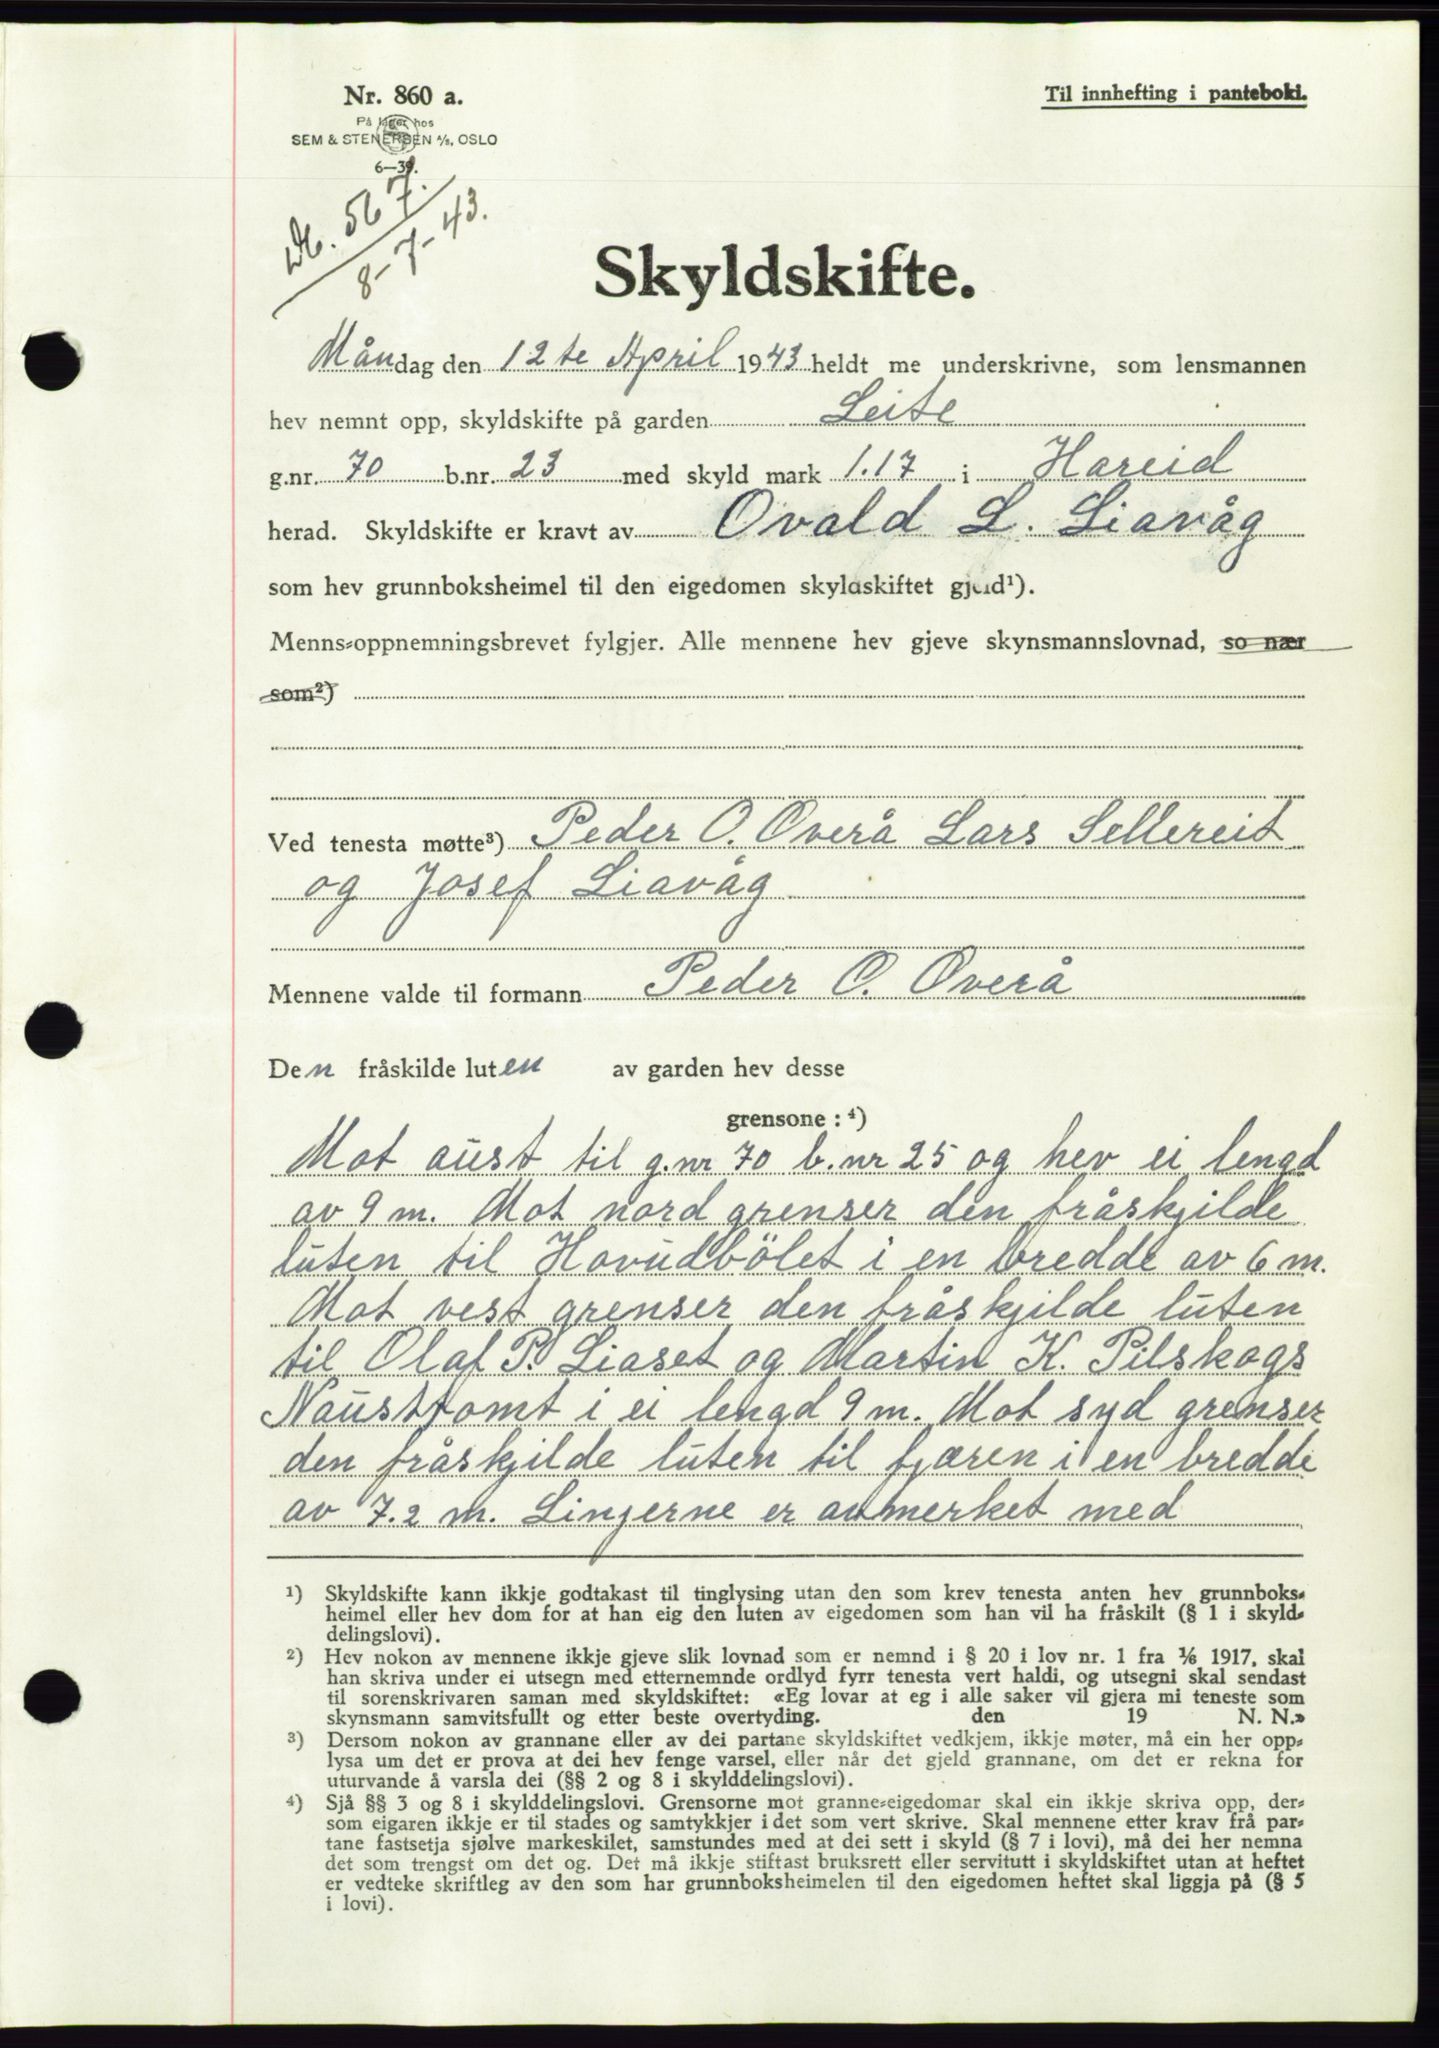 Nr. 860 a.
På lager hos
SEM & STENERSEN A/S, OSLO
6—39.
Til innhefting i panteboki.
Nr. 567.
8-7-43.
Skyldskifte.
Måndag den 12te April 1943 heldt me underskrivne, som lensmannen
hev nemnt opp, skyldskifte på garden Leite
g.nr. 70 b.nr. 23 med skyld mark 1.17 i Hareid
herad. Skyldskifte er kravt av Ovald L. Liavåg
som hev grunnboksheimel til den eigedomen skyldskiftet gjeld¹).
Menns-oppnemningsbrevet fylgjer. Alle mennene hev gjeve skynsmannslovnad, so nær
som²)
Ved tenesta møtte³) Peder O. Overå Lars Sellereit
og Josef Liavåg
Mennene valde til formann Peder O. Overå
Den fråskilde luten av garden hev desse
grensone : ⁴)
Mot aust til g.nr 70 b.nr 25 og hev ei lengd
av 9 m. Mot nord grenser den fråskjilde
luten til Hovudbölet i en bredde av 6 m.
Mot vest grenser den fråskjilde luten
til Olaf P. Liaset og Martin K. Pilskogs
Nausttomt i ei lengd 9 m. Mot syd grenser
den fråskjilde luten til fjæren i en bredde
av 7.2 m. Linjerne er anmerket med
¹) Skyldskifte kann ikkje godtakast til tinglysing utan den som krev tenesta anten hev grunnboks-
heimel eller hev dom for at han eig den luten av eigedomen som han vil ha fråskilt (§ 1 i skyld-
delingslovi).
²) Hev nokon av mennene ikkje gjeve slik lovnad som er nemnd i § 20 i lov nr. 1 fra 1/6 1917, skal
han skriva under ei utsegn med etternemnde ordlyd fyrr tenesta vert haldi, og utsegni skal sendast
til sorenskrivaren saman med skyldskiftet: «Eg lovar at eg i alle saker vil gjera mi teneste som
skynsmann samvitsfullt og etter beste overtyding. den 19 N. N.»
³) Dersom nokon av grannane eller av dei partane skyldskiftet vedkjem, ikkje møter, må ein her opp-
lysa um det er prova at dei hev fenge varsel, eller når det gjeld grannane, om det er rekna for
uturvande å varsla dei (§§ 2 og 8 i skylddelingslovi).
⁴) Sjå §§ 3 og 8 i skylddelingslovi. Grensorne mot granne-eigedomar skal ein ikkje skriva opp, der-
som eigaren ikkje er til stades og samtykkjer i det som vert skrive. Skal mennene etter krav frå par-
tane fastsetja sjølve markeskilet, samstundes med at dei sett i skyld (§ 7 i lovi), må dei her nemna
det som trengst om det og. Det må ikkje stiftast bruksrett eller servitutt i skyldskiftet utan at heftet
er vedteke skriftleg av den som har grunnboksheimelen til den eigedomen heftet skal liggja på (§ 5
i lovi).